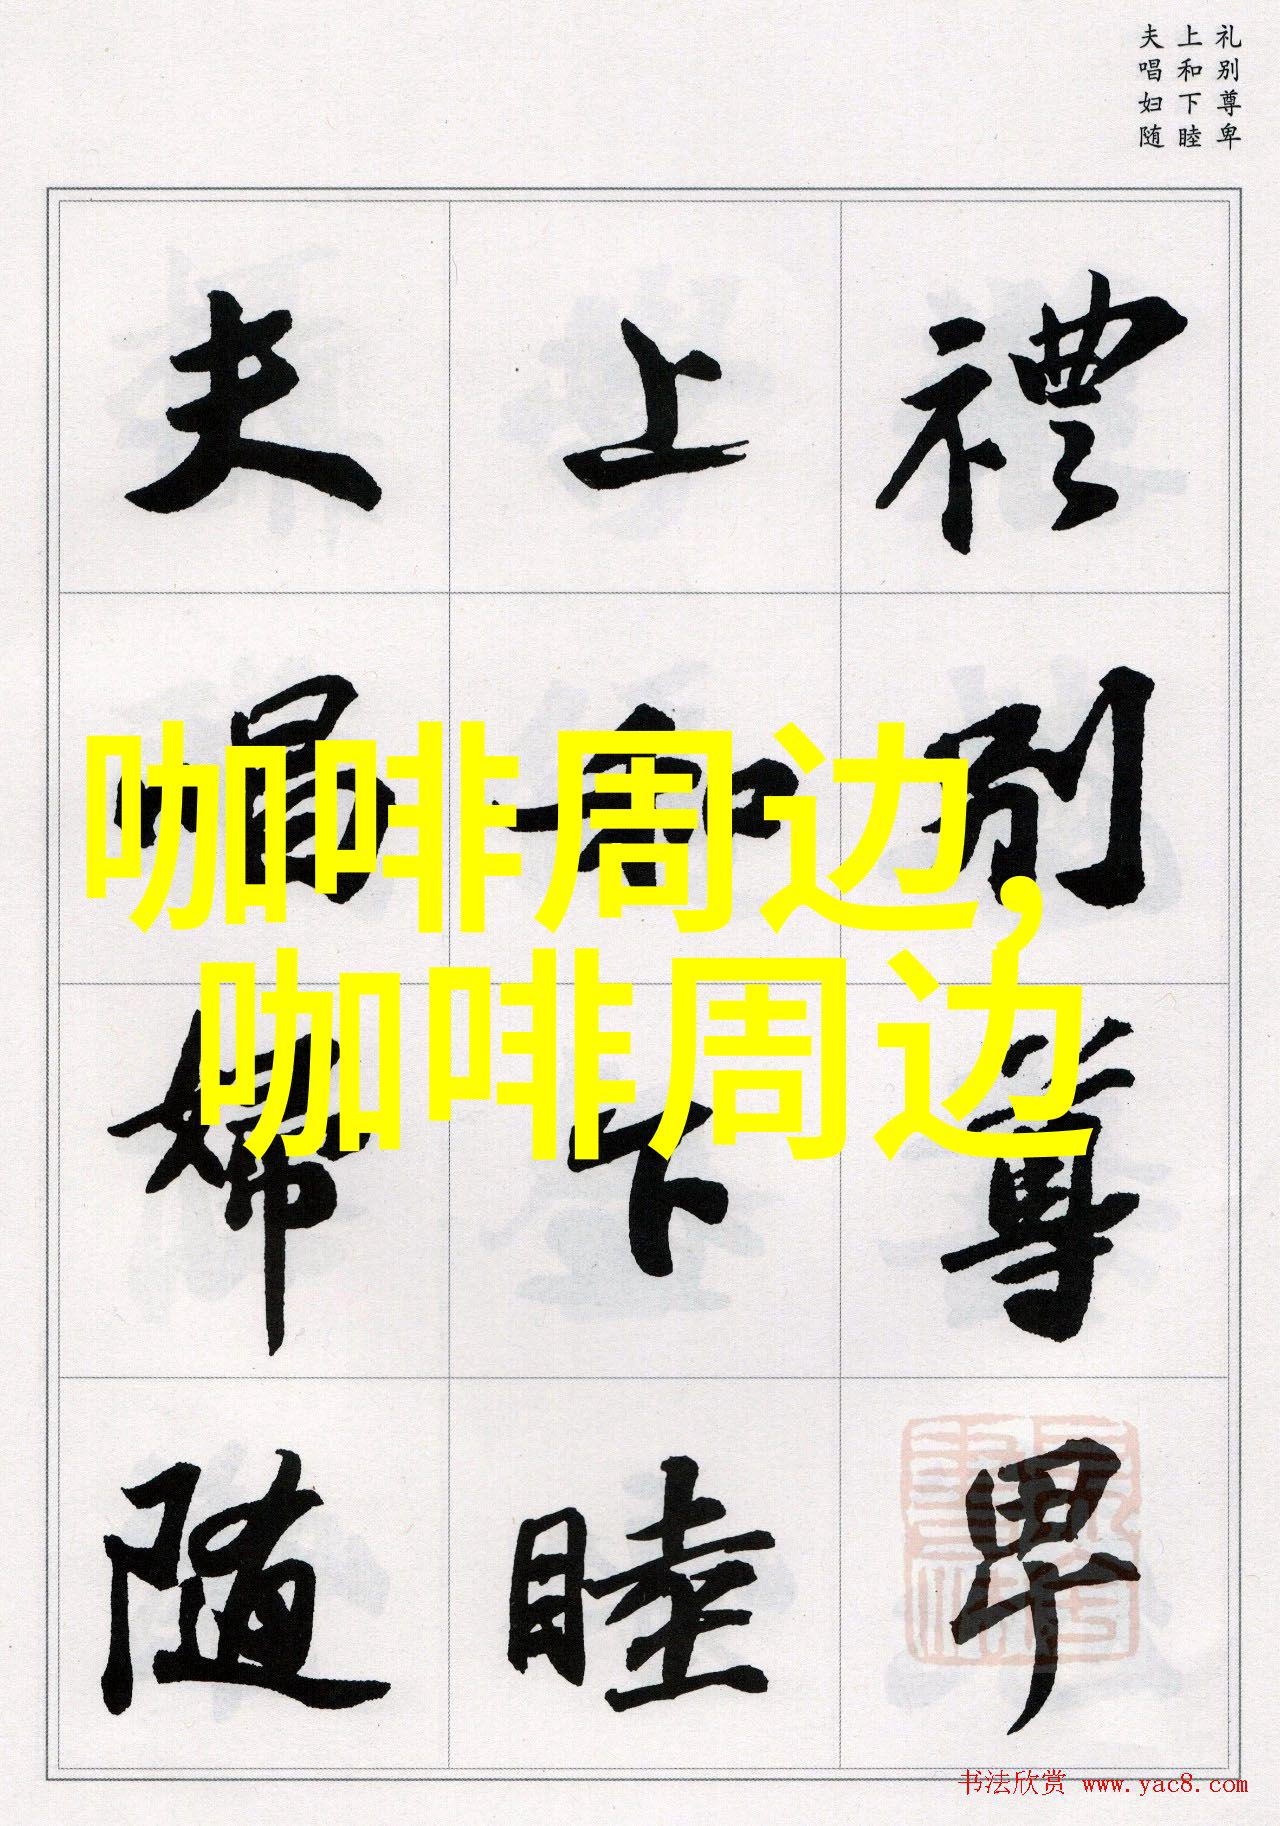 礼别尊卑
上和下睦
夫唱妇随
禮别尊卑
上和下睦
夫唱婦随
咖啡周边,
咖啡周边
书法欣赏 www.yac8.com